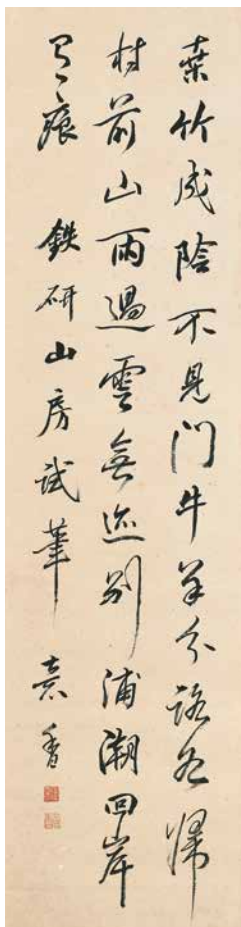 桒竹成陰不見門牛羊分路各歸
村前山雨過雲無迹別浦潮回岸
有痕 鉄研山房試筆 香